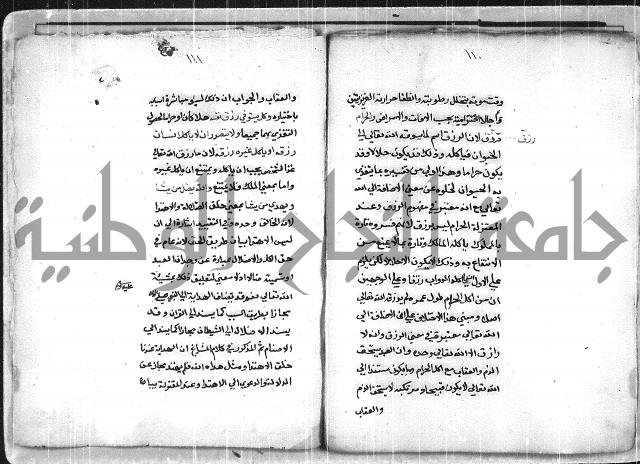 ١١٠
وقت موته بتحلل رطوبته وانطفا حرارته الغريزيتين
واجالا اخترامية بحسب الافات والامراض والحرام
رزق لان الرزق اسم لما يسوقه الله تعالى الى
رزق
الحيوان فياكله وذلك قد يكون حلالا وقد
يكون حراما وهذا اولى من تفسيره بما يتغذى
به الحيوان لخلوه عن معنى الاضافة الى الله
تعالى مع انه معتبر في مفهوم الرزق وعند
المعتزلة الحرام ليس برزق لانهم فسروه تارة
بمملوك ياكله المالك وتارة بما لا يمنع من
الانتفاع به وذلك لا يكون الا حلالا لكن يلزم
على الاول ان ياكله الدواب رزقا وعلى الوجهين
ان من اكل الحرام طول عمره لم يرزقه الله تعالى
اصلا ومبنى هذا الاختلاف على ان الاضافة الى
الله تعالى معتبرة في معنى الرزق وانه لا
رازق الا الله تعالى وحده وان العبد يستحق
الذم والعقاب على اكل الحرام وما يكون مستندا الى
الله تعالى لا يكون قبيحا ومرتكبه لا يستحق الذم
والعقاب
١١١
والعقاب والجواب ان ذلك لسوء مباشرة اسبابه
باختياره وكل يستوفي رزق نفسه حلالا كان او حراما لحصول
التغذي بهما جميعا ولا يتصور ان لا ياكل انسان
رزقه او ياكل غيره رزقه لان ما رزق الله تعالى
غذا لشخص يجب ان ياكله ويمتنع ان ياكله غيره
واما بمعنى الملك فلا يمتنع والله يضل من يشا
ويهدي من يشا بمعنى خلق الضلالة والاهتدا
لانه الخالق وحده وفي التقييد اشارة الى ان
ليس الاهتدا بيان طريق الحق لانه عام في
حق الكل والاضلال عبارة عن وجدان العبد
او تسميته ضالا اذ لا معنى لتعليق ذلك بمشية
الله تعالى نعم قد تضاف الهداية الى النبي
مجازا بطريق السبب كما يسند الى القران وقد
يسند الاضلال الى الشيطان مجازا كما يسند الى
الاصنام ثم المذكور في كلام المشايخ ان الهداية عندنا
خلق الاهتدا ومثل هداه الله فلم يهتد مجاز عن
الدلالة والدعوى الى الاهتدا وعند المعتزلة بيان
جامعة النجاح الوطنية